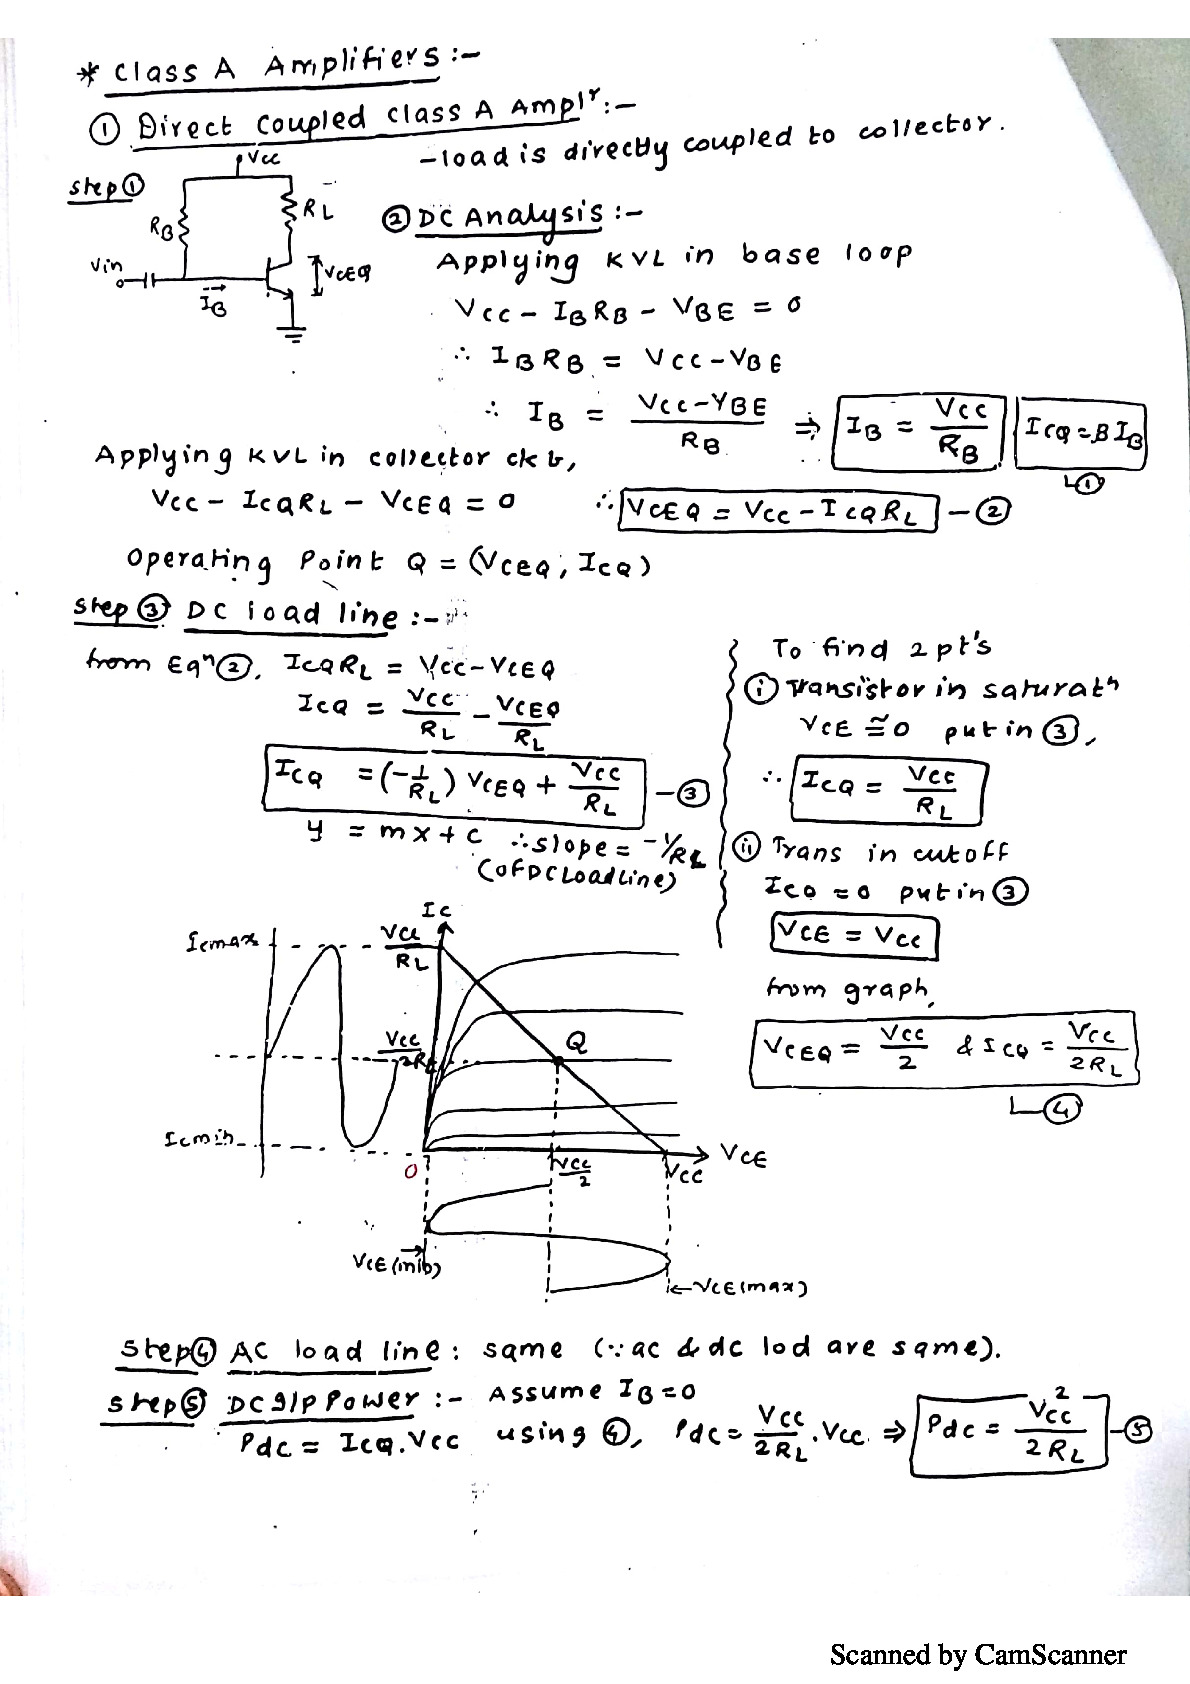 * Class A Amplifiers :-
① Direct Coupled Class A Amplr :-
- load is directly coupled to collector.
Step ①
Vcc
RB
RL
Vin
IB
VCEQ
② DC Analysis :-
Applying KVL in base loop
Vcc - IBRB - VBE = 0
∴ IBRB = Vcc - VBE
∴ IB = Vcc - VBE / RB ⇒ IB = Vcc / RB ICQ = βIB
①
Applying KVL in collector ckt,
Vcc - ICQRL - VCEQ = 0 ∴ VCEQ = Vcc - ICQRL - ②
Operating Point Q = (VCEQ, ICQ)
Step ③ DC load line :-
from Eqn ②, ICQRL = Vcc - VCEQ
ICQ = Vcc / RL - VCEQ / RL
ICQ = (-1/RL) VCEQ + Vcc / RL - ③
y = mx + c ∴ slope = -1/RL
(of DC Load Line)
To find 2 pt's
ⓘ Transistor in saturatn
VCE ≅ 0 put in ③,
∴ ICQ = Vcc / RL
ⓘⓘ Trans in cutoff
ICQ = 0 put in ③
VCE = Vcc
from graph,
VCEQ = Vcc / 2 & ICQ = Vcc / 2RL
④
Ic
Icmax
Vcc / RL
Vcc / 2RL
Q
Icmin
0
Vcc / 2
Vcc
VCE
VCE(min)
VCE(max)
Step ④ AC load line : same (∵ ac & dc lod are same).
Step ⑤ DC I/P Power :- Assume IB = 0
Pdc = ICQ.Vcc using ④, Pdc = Vcc / 2RL . Vcc ⇒ Pdc = Vcc² / 2RL - ⑤
Scanned by CamScanner